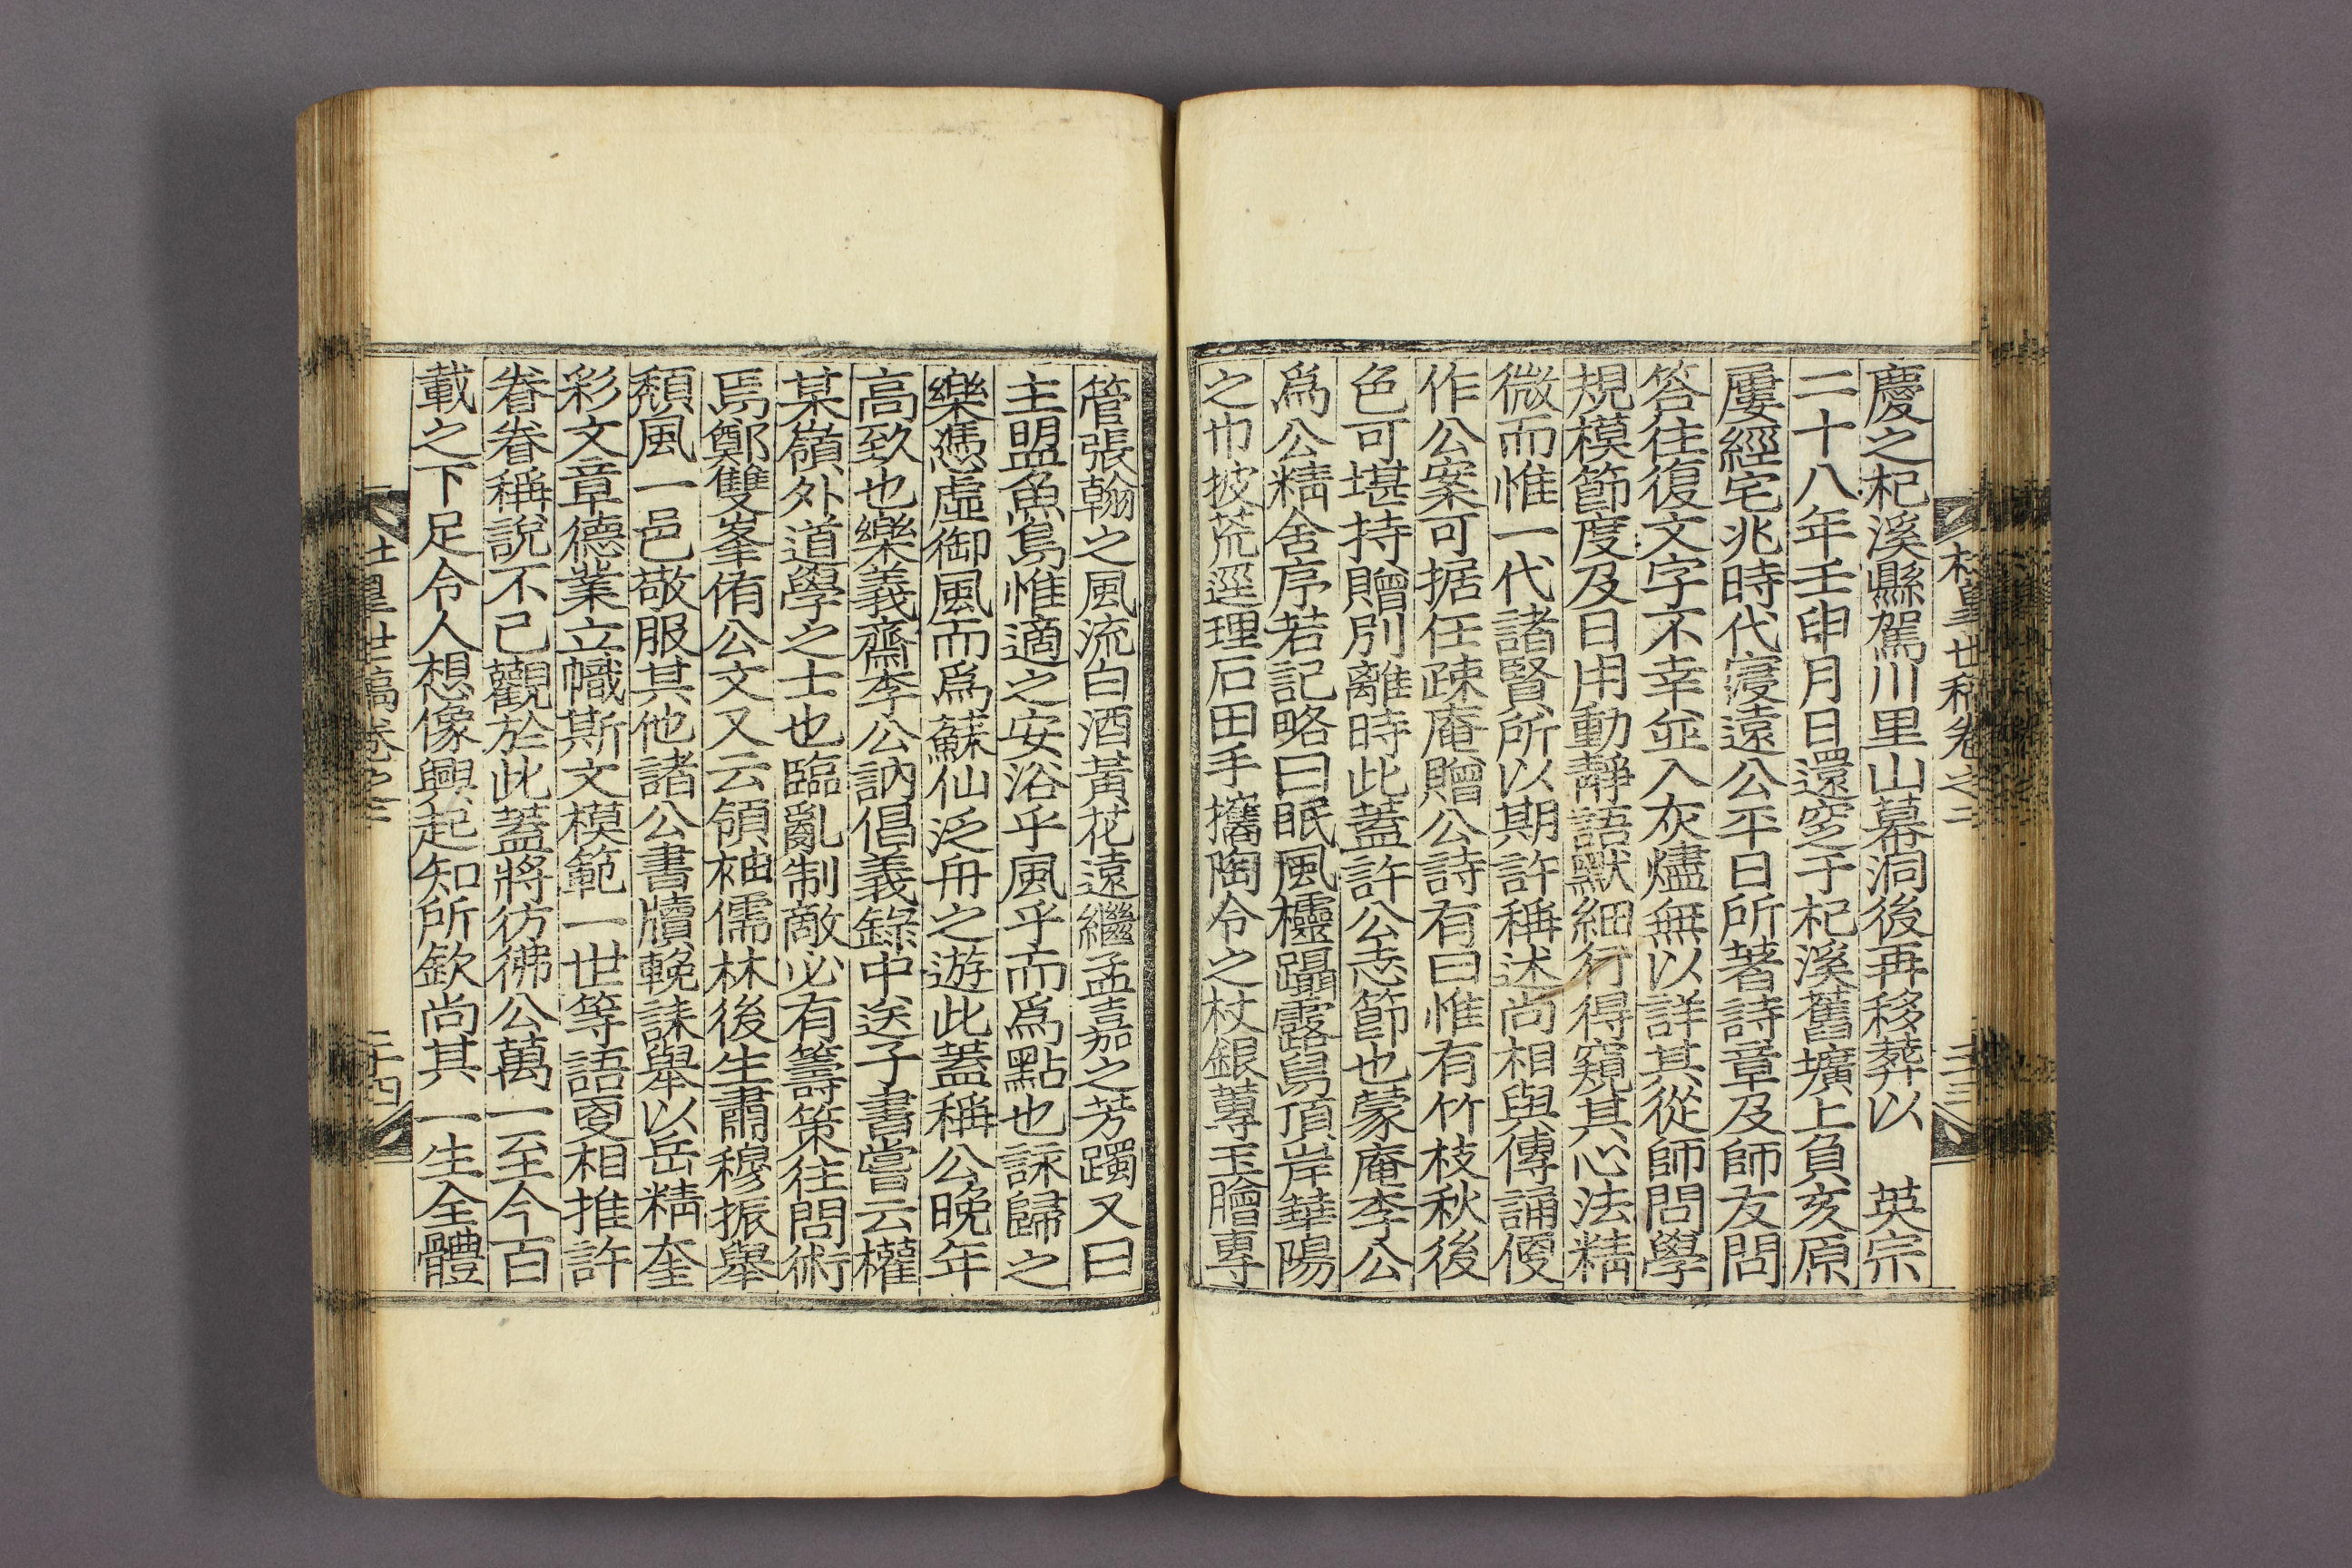 慶之杞溪縣駕川里山幕洞後再移葬以　英宗
二十八年壬申月日還窆于杞溪舊壙上負亥原
屢經宅兆時代寖遠公平日所著詩章及師友問
答往復文字不幸並入灰燼無以詳其從師問學
規模節度及日用動靜語默細行得窺其心法精
微而惟一代諸賢所以期許稱述尚相與傳誦便
作公案可据任疎庵贈公詩有曰惟有竹枝秋後
色可堪持贈別離時此蓋許公志節也蒙庵李公
爲公精舍序若記略曰眠風櫺躡露舃頂岸華陽
之巾披荒逕理石田手攜陶令之杖銀蓴玉膾專
世稿卷之二
二十三
管張翰之風流白酒黃花遠繼孟嘉之芳躅又曰
主盟魚鳥惟適之安浴乎風乎而爲點也詠歸之
樂憑虛御風而爲蘇仙泛舟之遊此蓋稱公晩年
高致也樂義齋李公訥倡義錄中送子書嘗云權
某嶺外道學之士也臨亂制敵必有籌策往問術
焉鄭雙峯侑公文又云領袖儒林後生肅穆振擧
頹風一邑敬服其他諸公書牘輓誄擧以岳精奎
彩文章德業立幟斯文模範一世等語亟相推許
眷眷稱說不已觀於此蓋將彷彿公萬一至今百
載之下足令人想像興起知所欽尚其一生全體
世稿卷之二
二十四